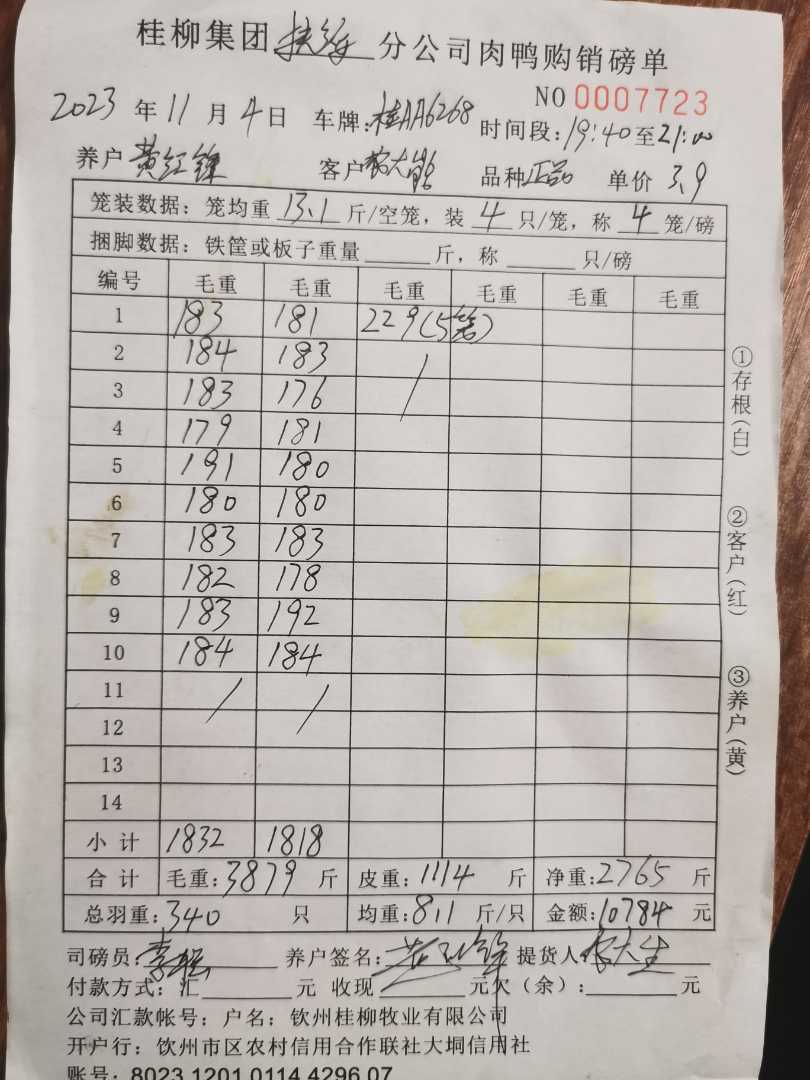 桂柳集团 分公司肉鸭购销磅单
NO 0007723
2023 年 11 月 4 日 车牌:桂AA6268 时间段:19:40至21:00
养户 黄红锋 客户 品种正品 单价 3.9
笼装数据:笼均重 13.1 斤/空笼,装 4 只/笼,称 4 笼/磅
捆脚数据:铁筐或板子重量 斤,称 只/磅
编号 毛重 毛重 毛重 毛重 毛重 毛重
1 183 181 229(5笼)
2 184 183 /
3 183 176
4 179 181
5 191 180
6 180 180
7 183 183
8 182 178
9 183 192
10 184 184
11 / /
12
13
14
小计 1832 1818
合计 毛重:3879 斤 皮重:1114 斤 净重:2765 斤
总羽重:340 只 均重:8.1 斤/只 金额:10784 元
司磅员: 养户签名: 提货人:
付款方式:汇 元 收现 元欠(余): 元
公司汇款帐号:户名:钦州桂柳牧业有限公司
开户行:钦州市区农村信用合作联社大垌信用社
账号:8023 1201 0114 4296 07
①存根(白)
②客户(红)
③养户(黄)